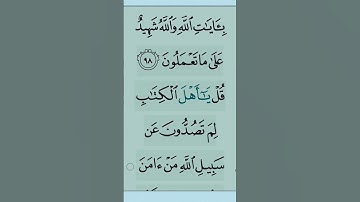 بِـَٔايَٰتِ ٱللَّهِ وَٱللَّهُ شَهِيدٌ
عَلَىٰ مَا تَعْمَلُونَ ٩٨
قُلْ يَٰٓأَهْلَ ٱلْكِتَٰبِ
لِمَ تَصُدُّونَ عَن
سَبِيلِ ٱللَّهِ مَنْ ءَامَنَ